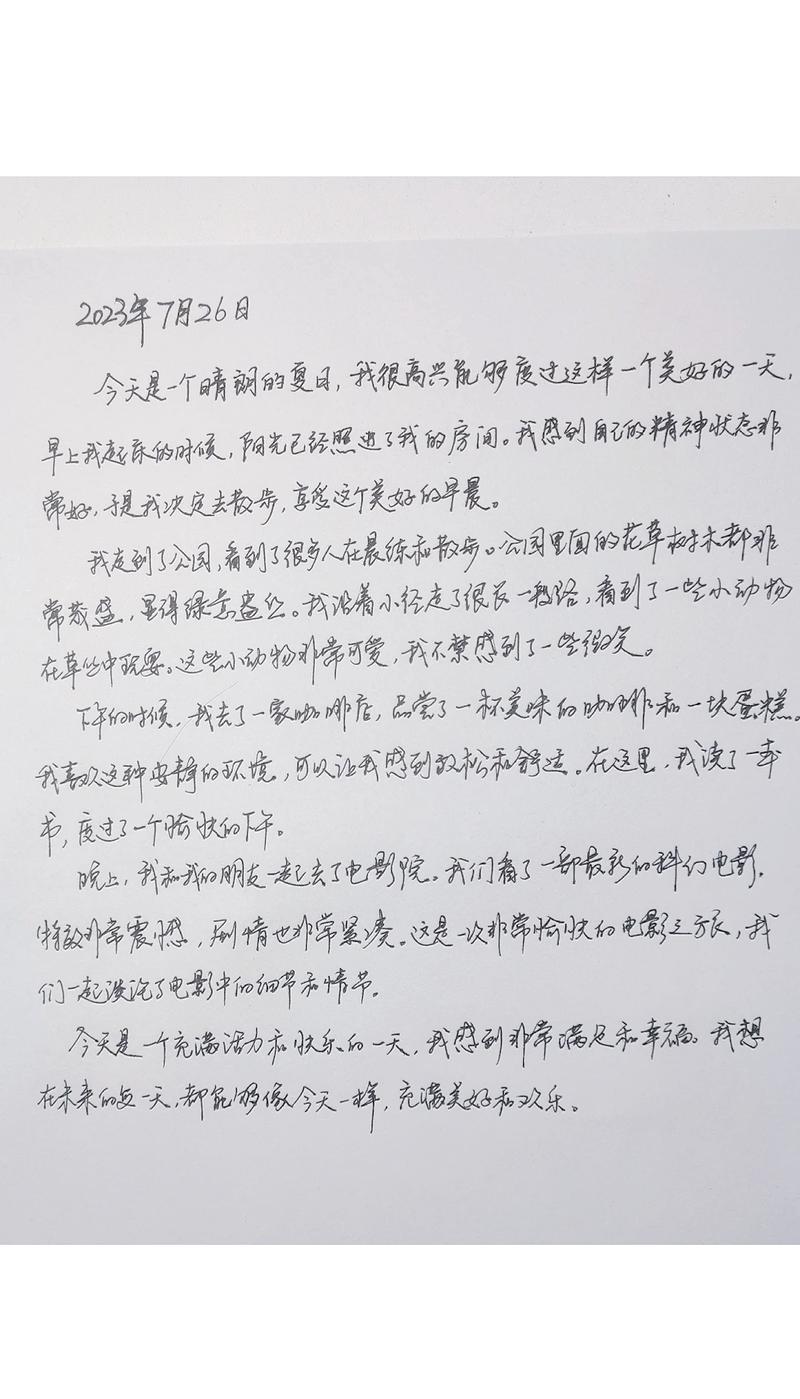 2023年7月26日
今天是一个晴朗的夏日，我很高兴能够度过这样一个美好的一天，
早上我起床的时候，阳光已经照进了我的房间。我感到自己的精神状态非
常好，于是我决定去散步，享受这个美好的早晨。
我走到了公园，看到了很多人在晨练和散步。公园里面的花草树木都非
常茂盛，显得绿意盎然。我沿着小径走了很长一段路，看到了一些小动物
在草丛中玩耍。这些小动物非常可爱，我不禁感到了一些微笑。
下午的时候，我去了一家咖啡店，品尝了一杯美味的咖啡和一块蛋糕。
我喜欢这种安静的环境，可以让我感到放松和舒适。在这里，我读了一本
书，度过了一个愉快的下午。
晚上，我和我的朋友一起去了电影院。我们看了一部最新的科幻电影，
特效非常震撼，剧情也非常紧凑。这是一次非常愉快的电影之旅，我
们一起谈论了电影中的细节和情节。
今天是一个充满活力和快乐的一天，我感到非常满足和幸福。我想
在未来的每一天，都能够像今天一样，充满美好和欢乐。